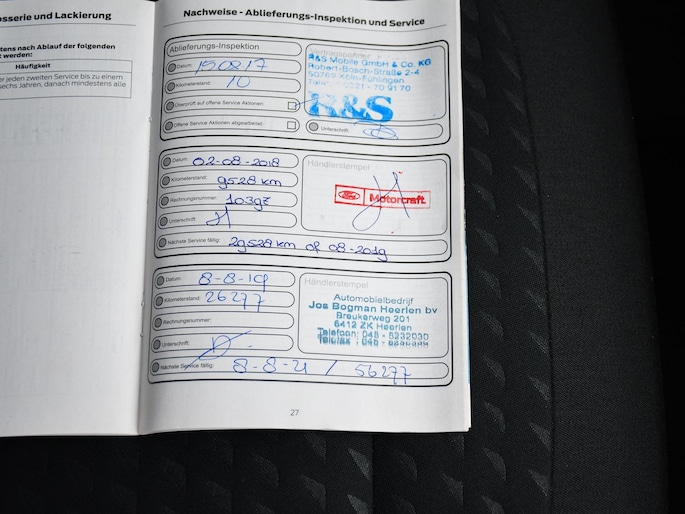 osserie und Lackierung
stens nach Ablauf der folgenden
t werden:
Häufigkeit
er jeden zweiten Service bis zu einem
sechs Jahren, danach mindestens alle
Nachweise - Ablieferungs-Inspektion und Service
Ablieferungs-Inspektion
Datum: 150817
Kilometerstand: 10
Überprüft auf offene Service Aktionen:
Offene Service Aktionen abgearbeitet:
Vertragspartner
R&S Mobile GmbH & Co. KG
Robert-Bosch-Straße 2-4
50769 Köln-Fühlingen
0221 - 70 91 70
R&S
Unterschrift:
Datum: 02-08-2018
Kilometerstand: 9528 km
Rechnungsnummer:
Unterschrift:
Nächste Service fällig: 29528 km of 08-2019
Händlerstempel
Ford Motorcraft
Datum: 8-8-19
Kilometerstand: 26277
Rechnungsnummer:
Unterschrift:
Nächste Service fällig: 8-8-21 / 56277
Händlerstempel
Automobielbedrijf
Jos Bogman Heerlen bv
Breukerweg 201
6412 ZK Heerlen
Telefoon: 045 - 5232030
27